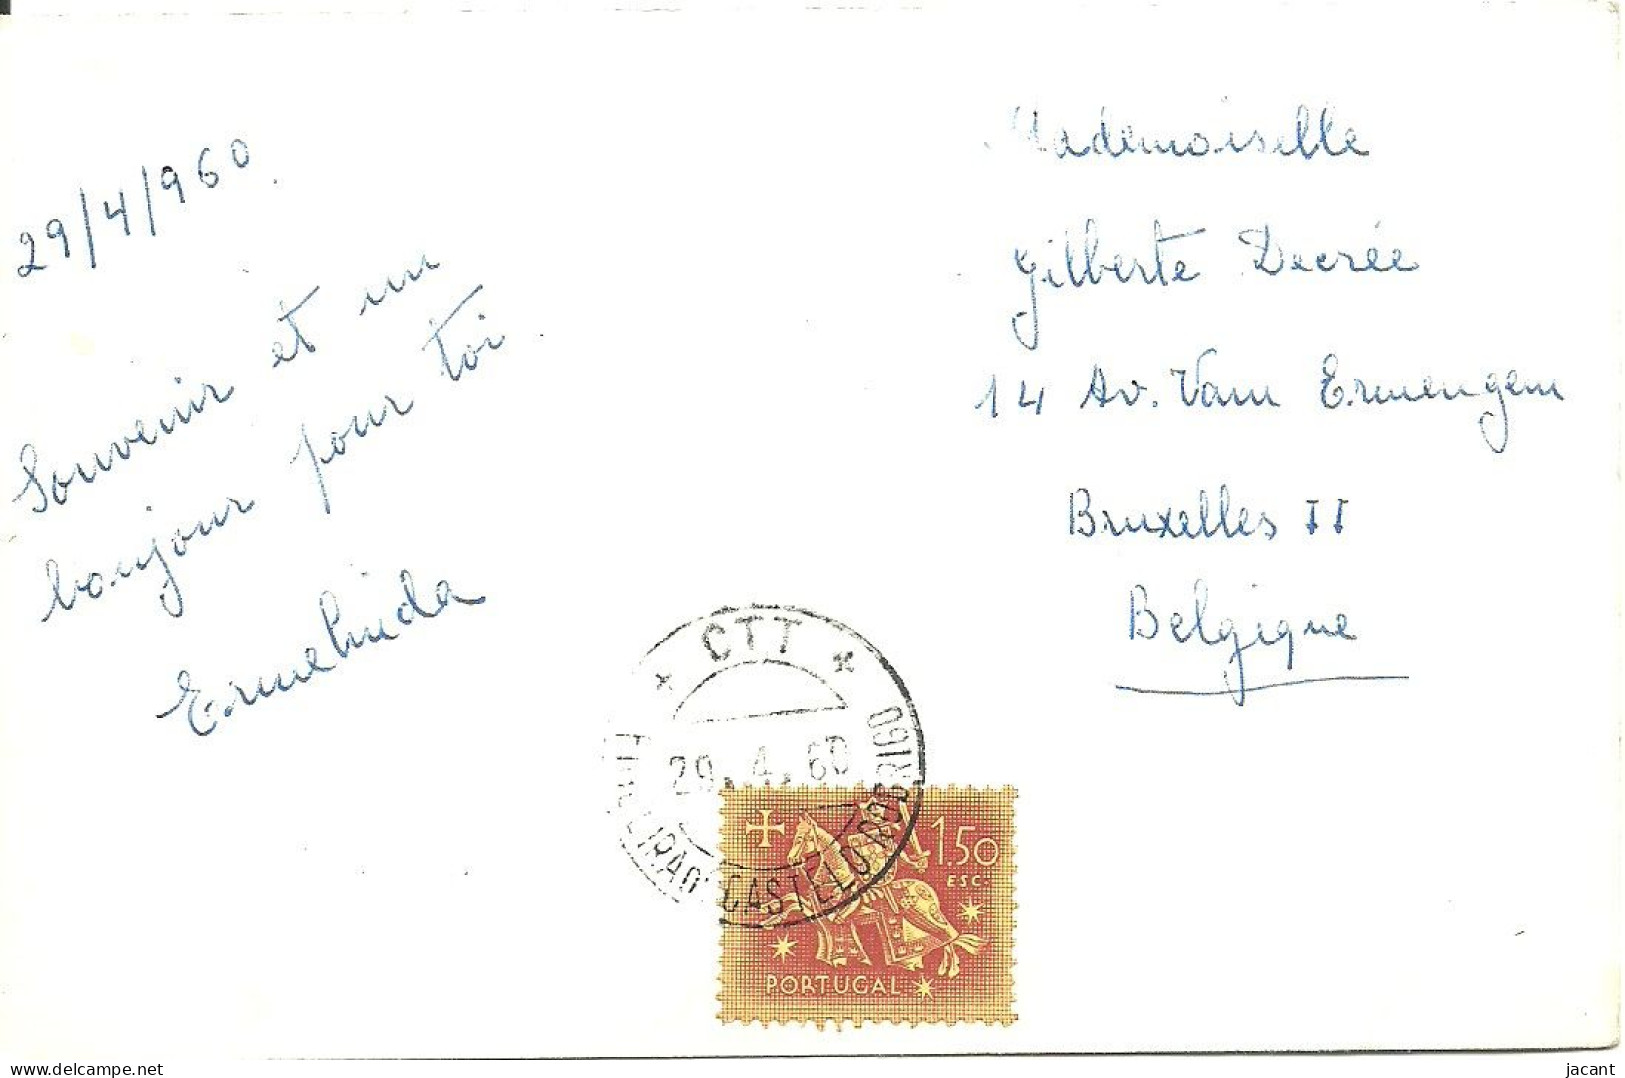 29/4/960.
Souvenir et un
bonjour pour toi
Ermelinda
Mademoiselle
Gilberte Decrée
14 Av. Vam Ermengem
Bruxelles II
Belgique
* CTT *
29.4.60
CASTELO RODRIGO
1.50
ESC.
PORTUGAL
delcampe.net
jacant